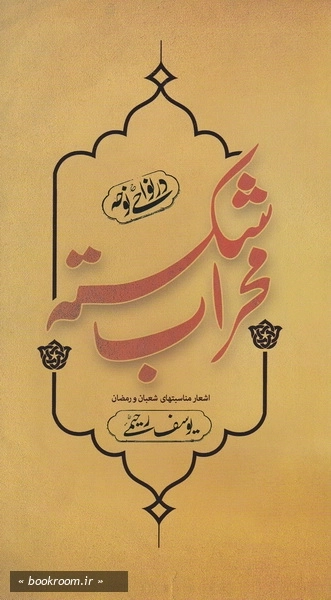 در نواحی نوحه
محراب شکسته
اشعار مناسبتهای شعبان و رمضان
یوسف رحیمی
« bookroom.ir »